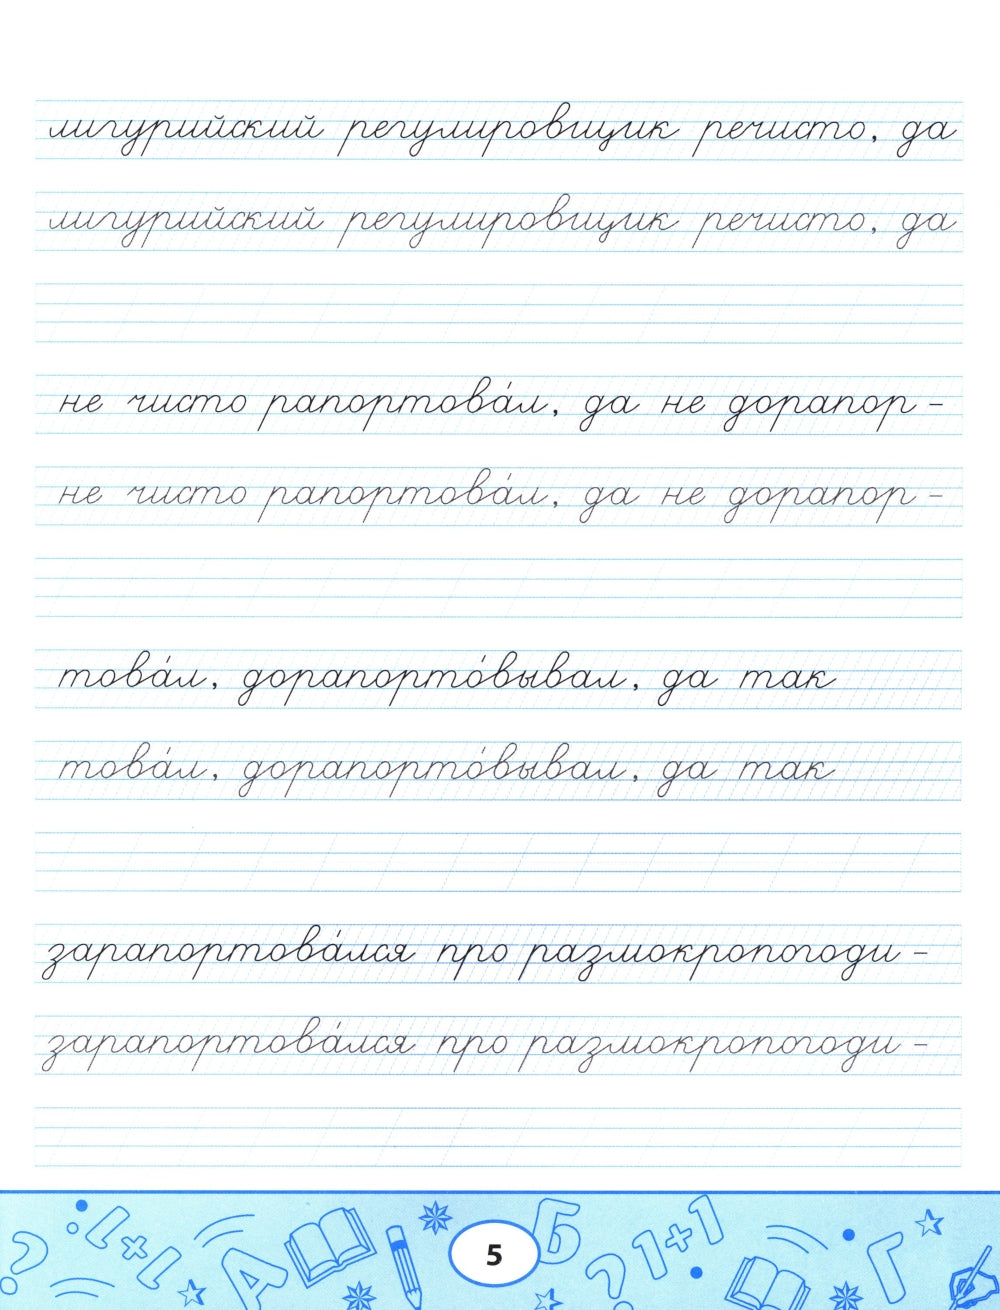 лигурийский регулировщик речисто, да
лигурийский регулировщик речисто, да
не чисто рапортова́л, да не дорапор-
не чисто рапортова́л, да не дорапор-
това́л, дорапорто́вывал, да так
това́л, дорапорто́вывал, да так
зарапортова́лся про размокропогоди-
зарапортова́лся про размокропогоди-
? 1+1 А Б ? 1+1 Г
5